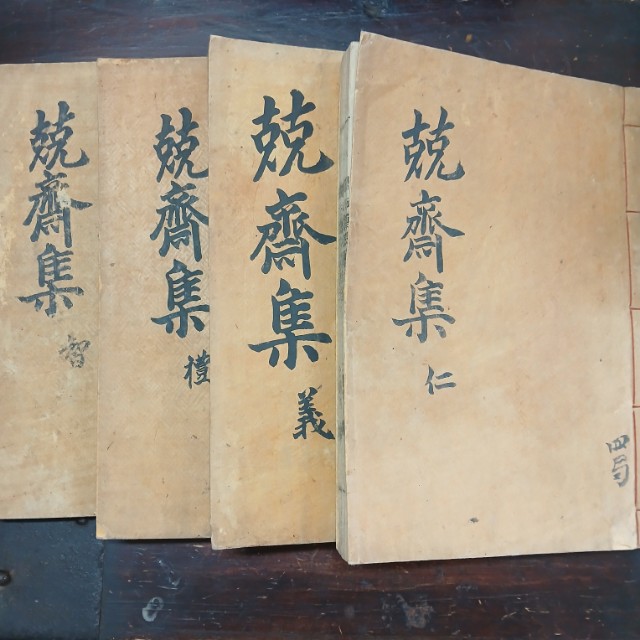 兢齋集 仁
四
兢齋集 義
兢齋集 禮
兢齋集 智